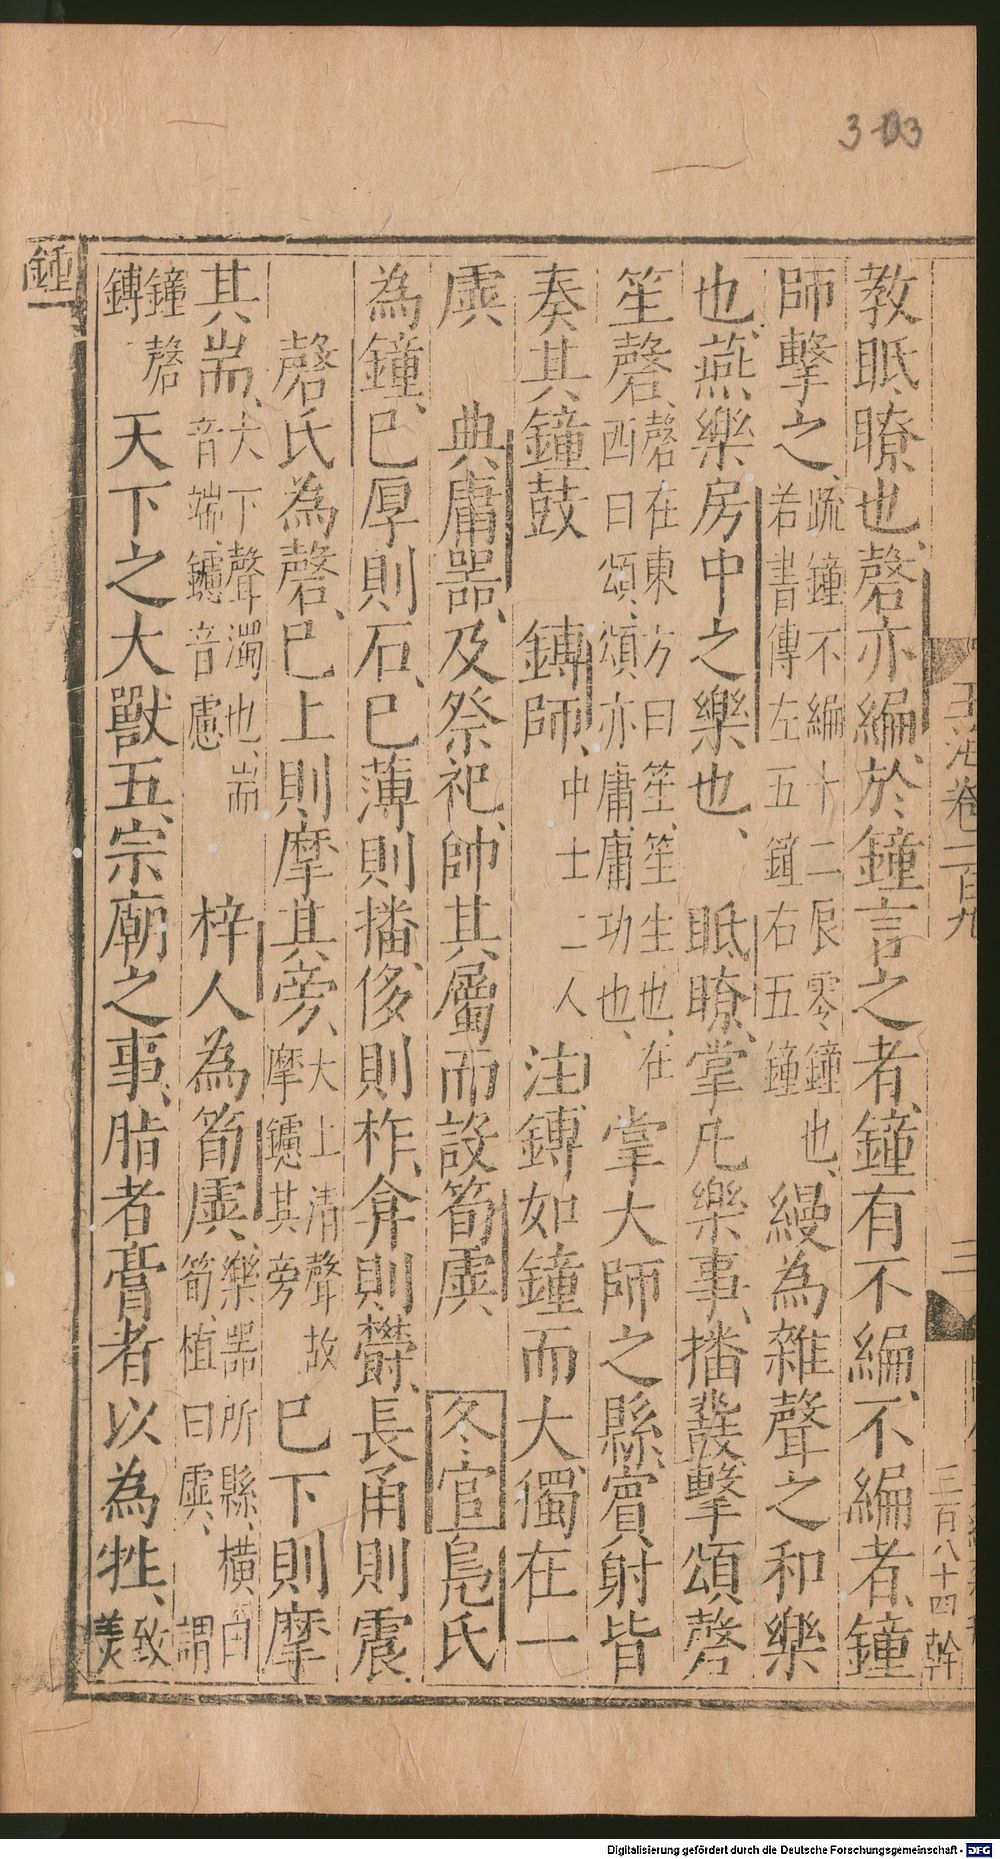 303
教眡瞭也、磬亦編、於鐘言之者、鐘有不編、不編者、鐘
師擊之、疏鐘不編十二辰零鐘也、若書傳左五鐘右五鐘 縵為雜聲之和樂
也、燕樂房中之樂也、 眡瞭、掌凡樂事、播鼗擊頌磬
笙磬、磬在東方曰笙、笙生也、在西曰頌、頌亦庸、庸功也、 掌大師之縣、賓射皆
奏其鐘鼓 鎛師、中士二人 注鎛如鐘而大、獨在一
虡 典庸器、及祭祀、帥其屬而設筍虡 冬官 鳧氏
為鐘、已厚則石、已薄則播、侈則柞、弇則鬱、長甬則震、
磬氏為磬、已上則摩其旁、大上清聲故摩鑢其旁 已下則摩
其耑、大下聲濁也、耑音端、鑢音慮 梓人為筍虡、樂器所縣、橫曰筍、植曰虡、 謂
鐘磬鎛 天下之大獸五、宗廟之事、脂者膏者以為牲、致美
鍾
玉海卷一百九
三
三百八十四
幹
Digitalisierung gefördert durch die Deutsche Forschungsgemeinschaft - DFG